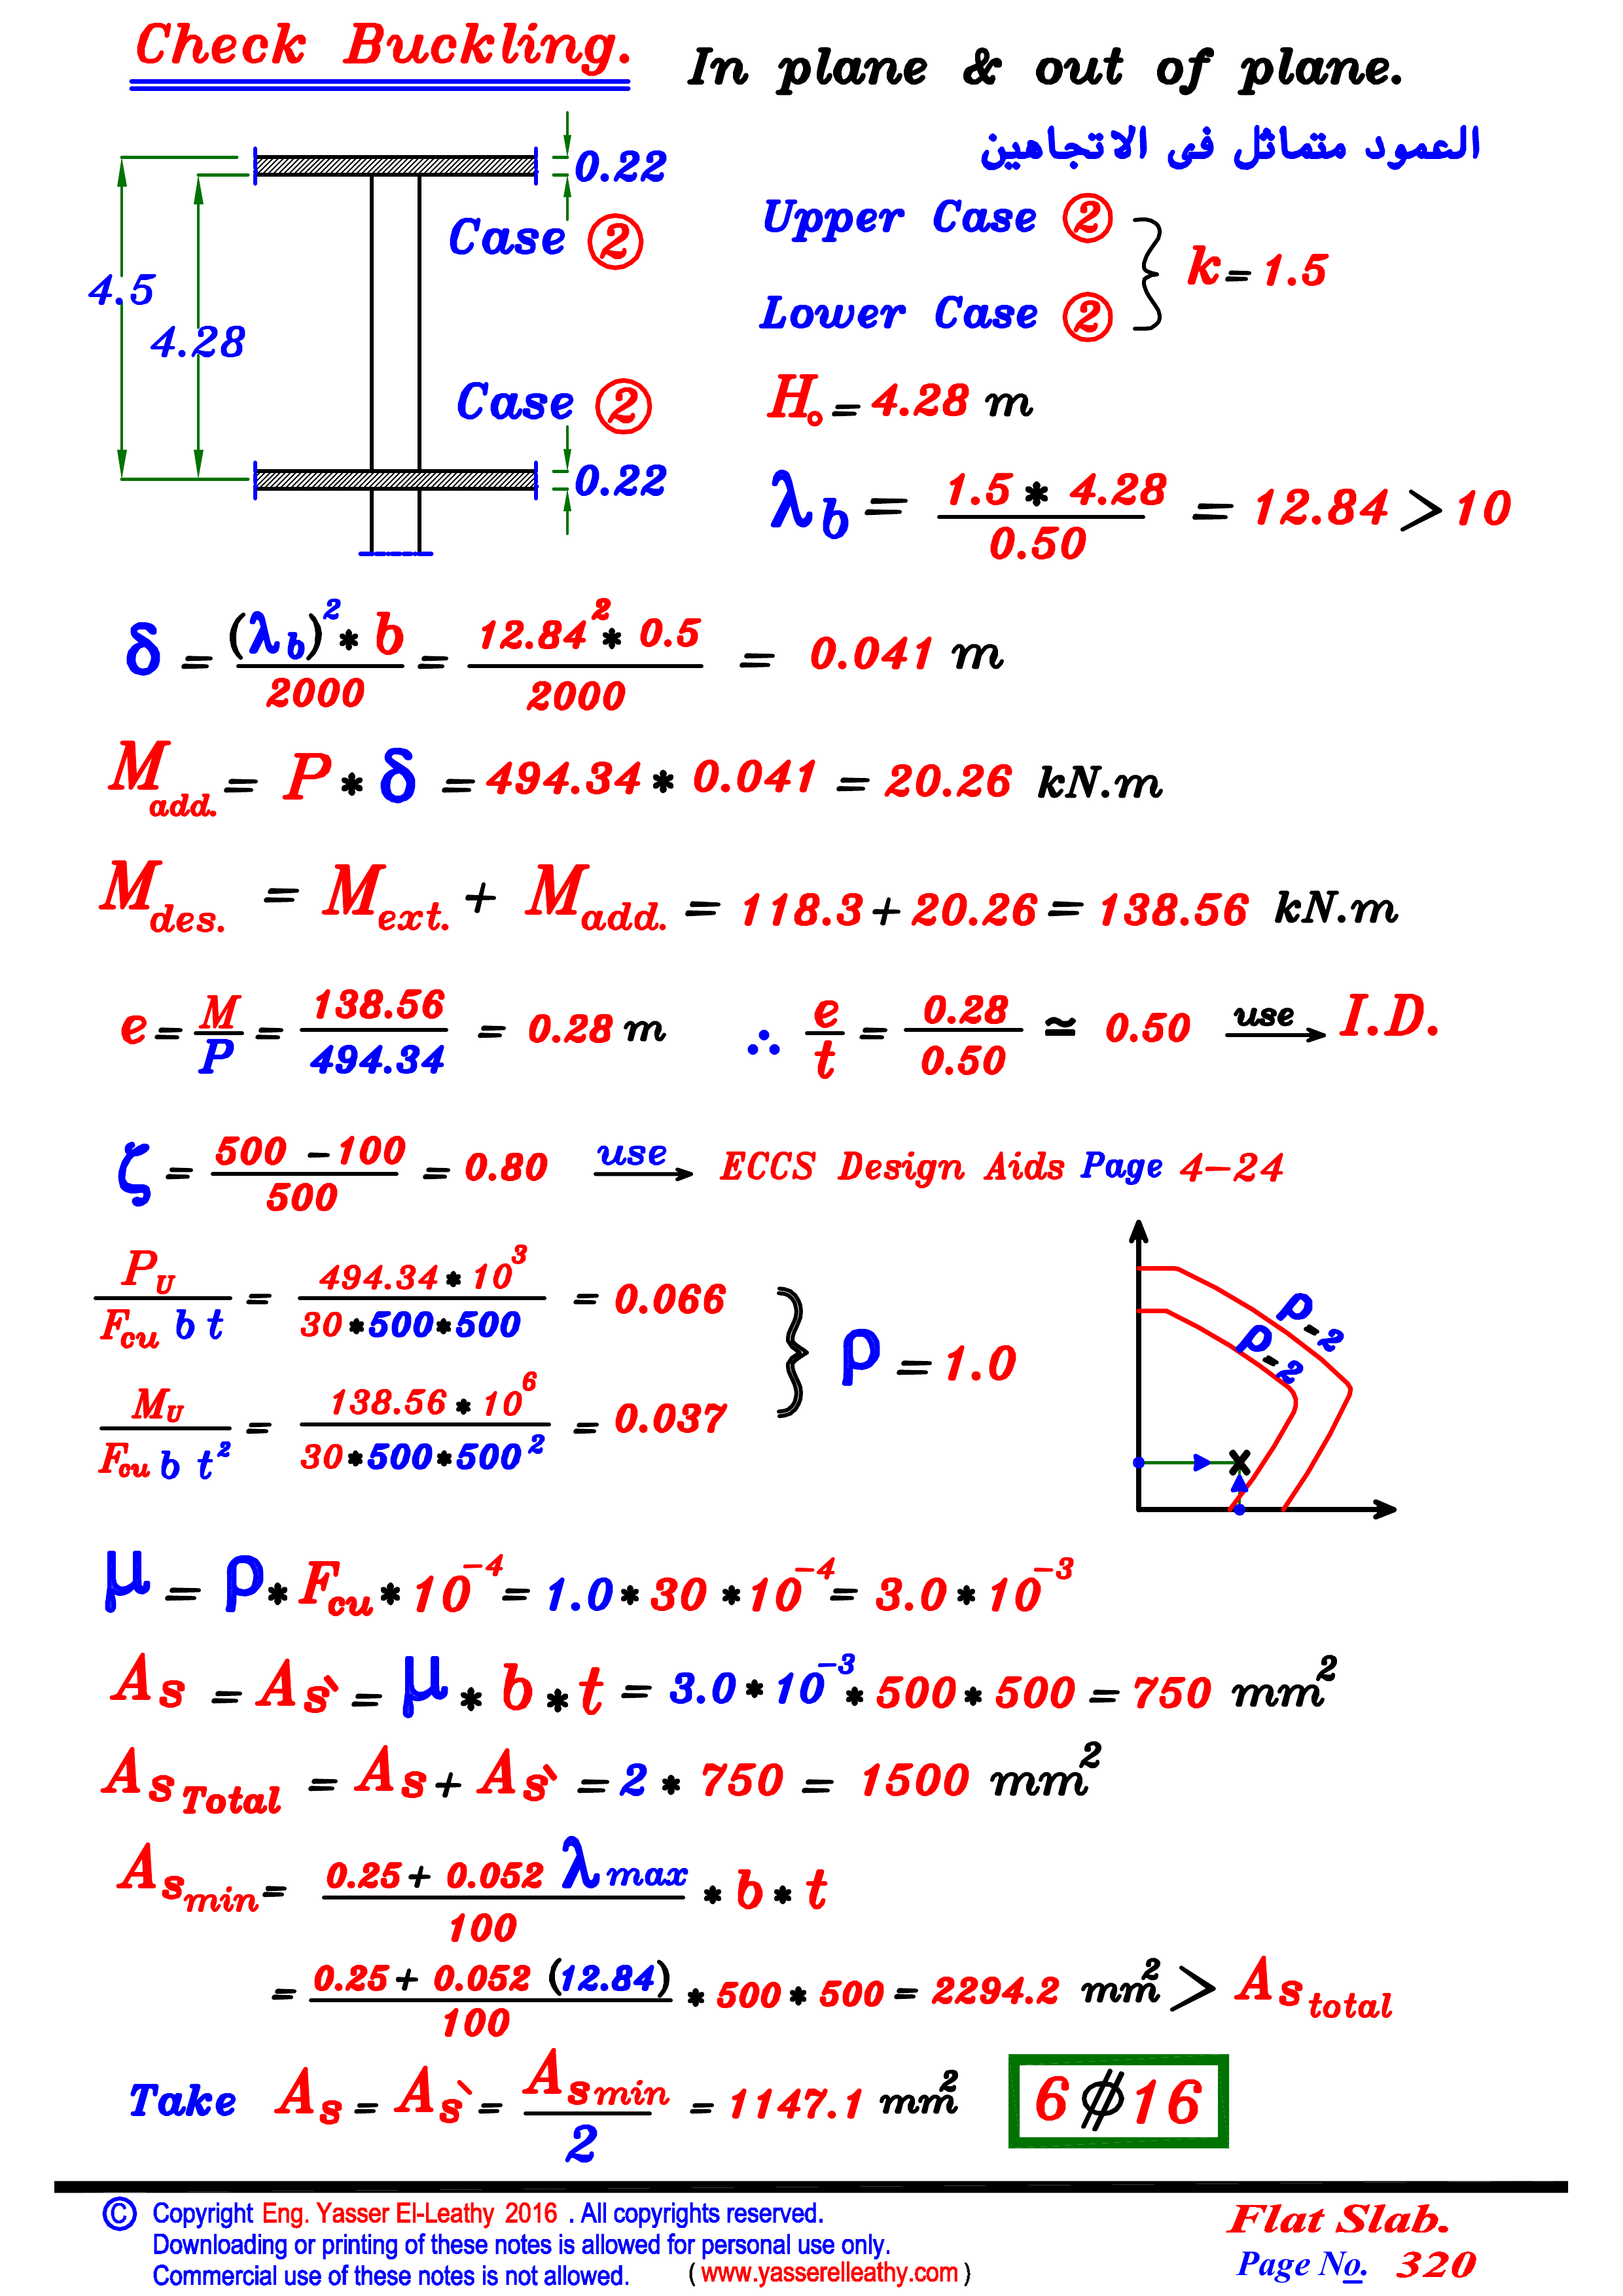 Check Buckling. In plane & out of plane.
العمود متماثل فى الاتجاهين
0.22
Case 2
4.5
4.28
Case 2
0.22
Upper Case 2
Lower Case 2
k = 1.5
H₀ = 4.28 m
λb = 1.5 * 4.28 / 0.50 = 12.84 > 10
δ = (λb)² * b / 2000 = 12.84² * 0.5 / 2000 = 0.041 m
Madd. = P * δ = 494.34 * 0.041 = 20.26 kN.m
Mdes. = Mext. + Madd. = 118.3 + 20.26 = 138.56 kN.m
e = M / P = 138.56 / 494.34 = 0.28 m ∴ e / t = 0.28 / 0.50 ≃ 0.50 use → I.D.
ζ = 500 - 100 / 500 = 0.80 use → ECCS Design Aids Page 4-24
PU / Fcu b t = 494.34 * 10³ / 30 * 500 * 500 = 0.066
MU / Fcu b t² = 138.56 * 10⁶ / 30 * 500 * 500² = 0.037
ρ = 1.0
ρ-2
ρ-2
μ = ρ * Fcu * 10⁻⁴ = 1.0 * 30 * 10⁻⁴ = 3.0 * 10⁻³
As = As` = μ * b * t = 3.0 * 10⁻³ * 500 * 500 = 750 mm²
As Total = As + As` = 2 * 750 = 1500 mm²
Asmin = 0.25 + 0.052 λmax / 100 * b * t
= 0.25 + 0.052 (12.84) / 100 * 500 * 500 = 2294.2 mm² > As total
Take As = As` = Asmin / 2 = 1147.1 mm² 6 ⌀ 16
© Copyright Eng. Yasser El-Leathy 2016 . All copyrights reserved.
Downloading or printing of these notes is allowed for personal use only.
Commercial use of these notes is not allowed. ( www.yasserelleathy.com )
Flat Slab.
Page No. 320